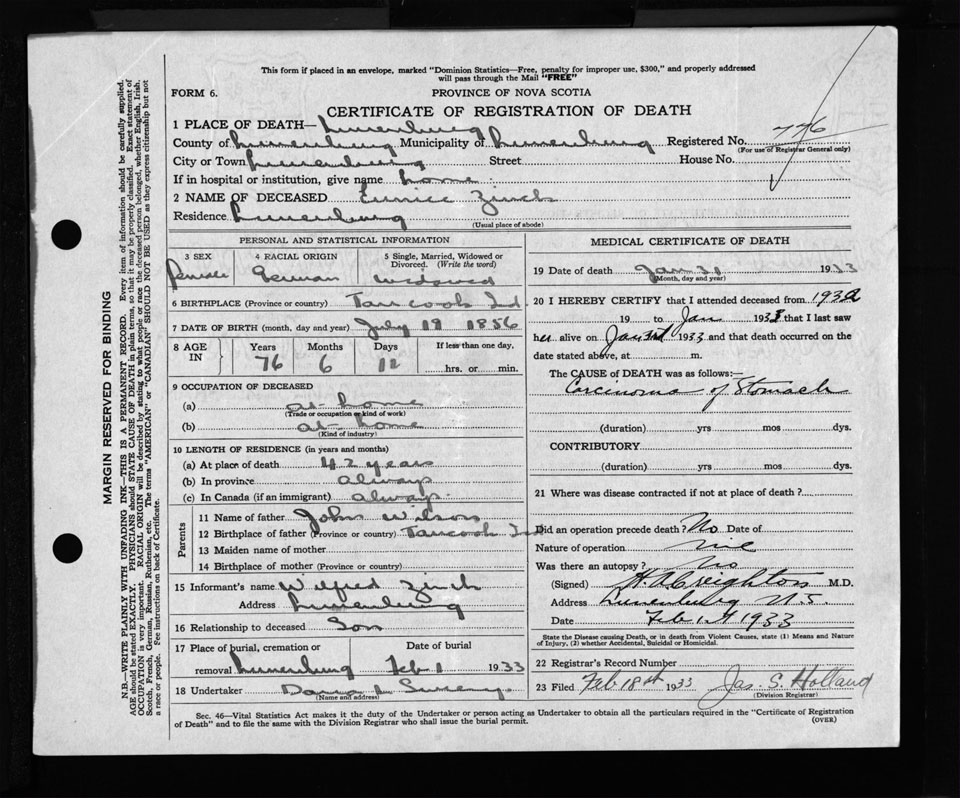 This form if placed in an envelope, marked "Dominion Statistics—Free, penalty for improper use, $300," and properly addressed
will pass through the Mail "FREE"
FORM 6. PROVINCE OF NOVA SCOTIA
CERTIFICATE OF REGISTRATION OF DEATH
1 PLACE OF DEATH— Lunenburg
County of Lunenburg Municipality of Lunenburg Registered No. 776
(For use of Registrar General only)
City or Town Lunenburg Street House No.
If in hospital or institution, give name home
2 NAME OF DECEASED Eunice Zinck
Residence Lunenburg
(Usual place of abode)
PERSONAL AND STATISTICAL INFORMATION
3 SEX 4 RACIAL ORIGIN 5 Single, Married, Widowed or
Divorced. (Write the word)
Female German Widowed
6 BIRTHPLACE (Province or country) Tancook Isd.
7 DATE OF BIRTH (month, day and year) July 19 1856
8 AGE IN Years Months Days If less than one day,
76 6 12 hrs. or min.
9 OCCUPATION OF DECEASED
(a) at home
(Trade or occupation or kind of work)
(b) at home
(Kind of industry)
10 LENGTH OF RESIDENCE (in years and months)
(a) At place of death 42 years
(b) In province always
(c) In Canada (if an immigrant) always
Parents
11 Name of father John Wilson
12 Birthplace of father (Province or country) Tancook Isd
13 Maiden name of mother
14 Birthplace of mother (Province or country)
15 Informant's name Wilfred Zinck
Address Lunenburg
16 Relationship to deceased Son
17 Place of burial, cremation or Date of burial
removal Lunenburg Feb 1 1933
18 Undertaker
(Name and address)
MEDICAL CERTIFICATE OF DEATH
19 Date of death Jan 31 1933
(Month, day and year)
20 I HEREBY CERTIFY that I attended deceased from 1932
19 to Jan 1933 that I last saw
her alive on Jan 1933 and that death occurred on the
date stated above, at m.
The CAUSE of DEATH was as follows:—
Carcinoma of Stomach
(duration) yrs mos dys.
CONTRIBUTORY
(duration) yrs mos dys.
21 Where was disease contracted if not at place of death?
Did an operation precede death? No Date of
Nature of operation nil
Was there an autopsy? No
(Signed) H. A. Creighton M.D.
Address Lunenburg N.S.
Date Feb 1st 1933
State the Disease causing Death, or in death from Violent Causes, state (1) Means and Nature
of Injury, (2) whether Accidental, Suicidal or Homicidal.
22 Registrar's Record Number
23 Filed Feb 18st 1933 Jas. S. Holland
(Division Registrar)
Sec. 46—Vital Statistics Act makes it the duty of the Undertaker or person acting as Undertaker to obtain all the particulars required in the "Certificate of Registration
of Death" and to file the same with the Division Registrar who shall issue the burial permit.
(OVER)
MARGIN RESERVED FOR BINDING
N.B.—WRITE PLAINLY WITH UNFADING INK—THIS IS A PERMANENT RECORD. Every item of information should be carefully supplied.
AGE should be stated EXACTLY. PHYSICIANS should STATE CAUSE OF DEATH in plain terms, so that it may be properly classified. Exact statement of
OCCUPATION is very important. RACIAL ORIGIN will be described by stating to what people or race the deceased person belonged, whether English, Irish,
Scotch, French, German, Russian, Ruthenian, etc. The terms "AMERICAN" or "CANADIAN" SHOULD NOT BE USED as they express citizenship but not
a race or people. Fee instructions on back of Certificate.